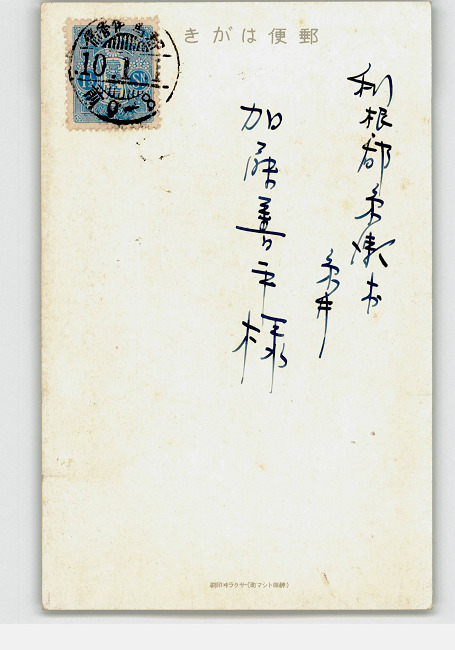 郵便はがき
利根郡糸瀬村
糸井
加藤善平様
10.1.1